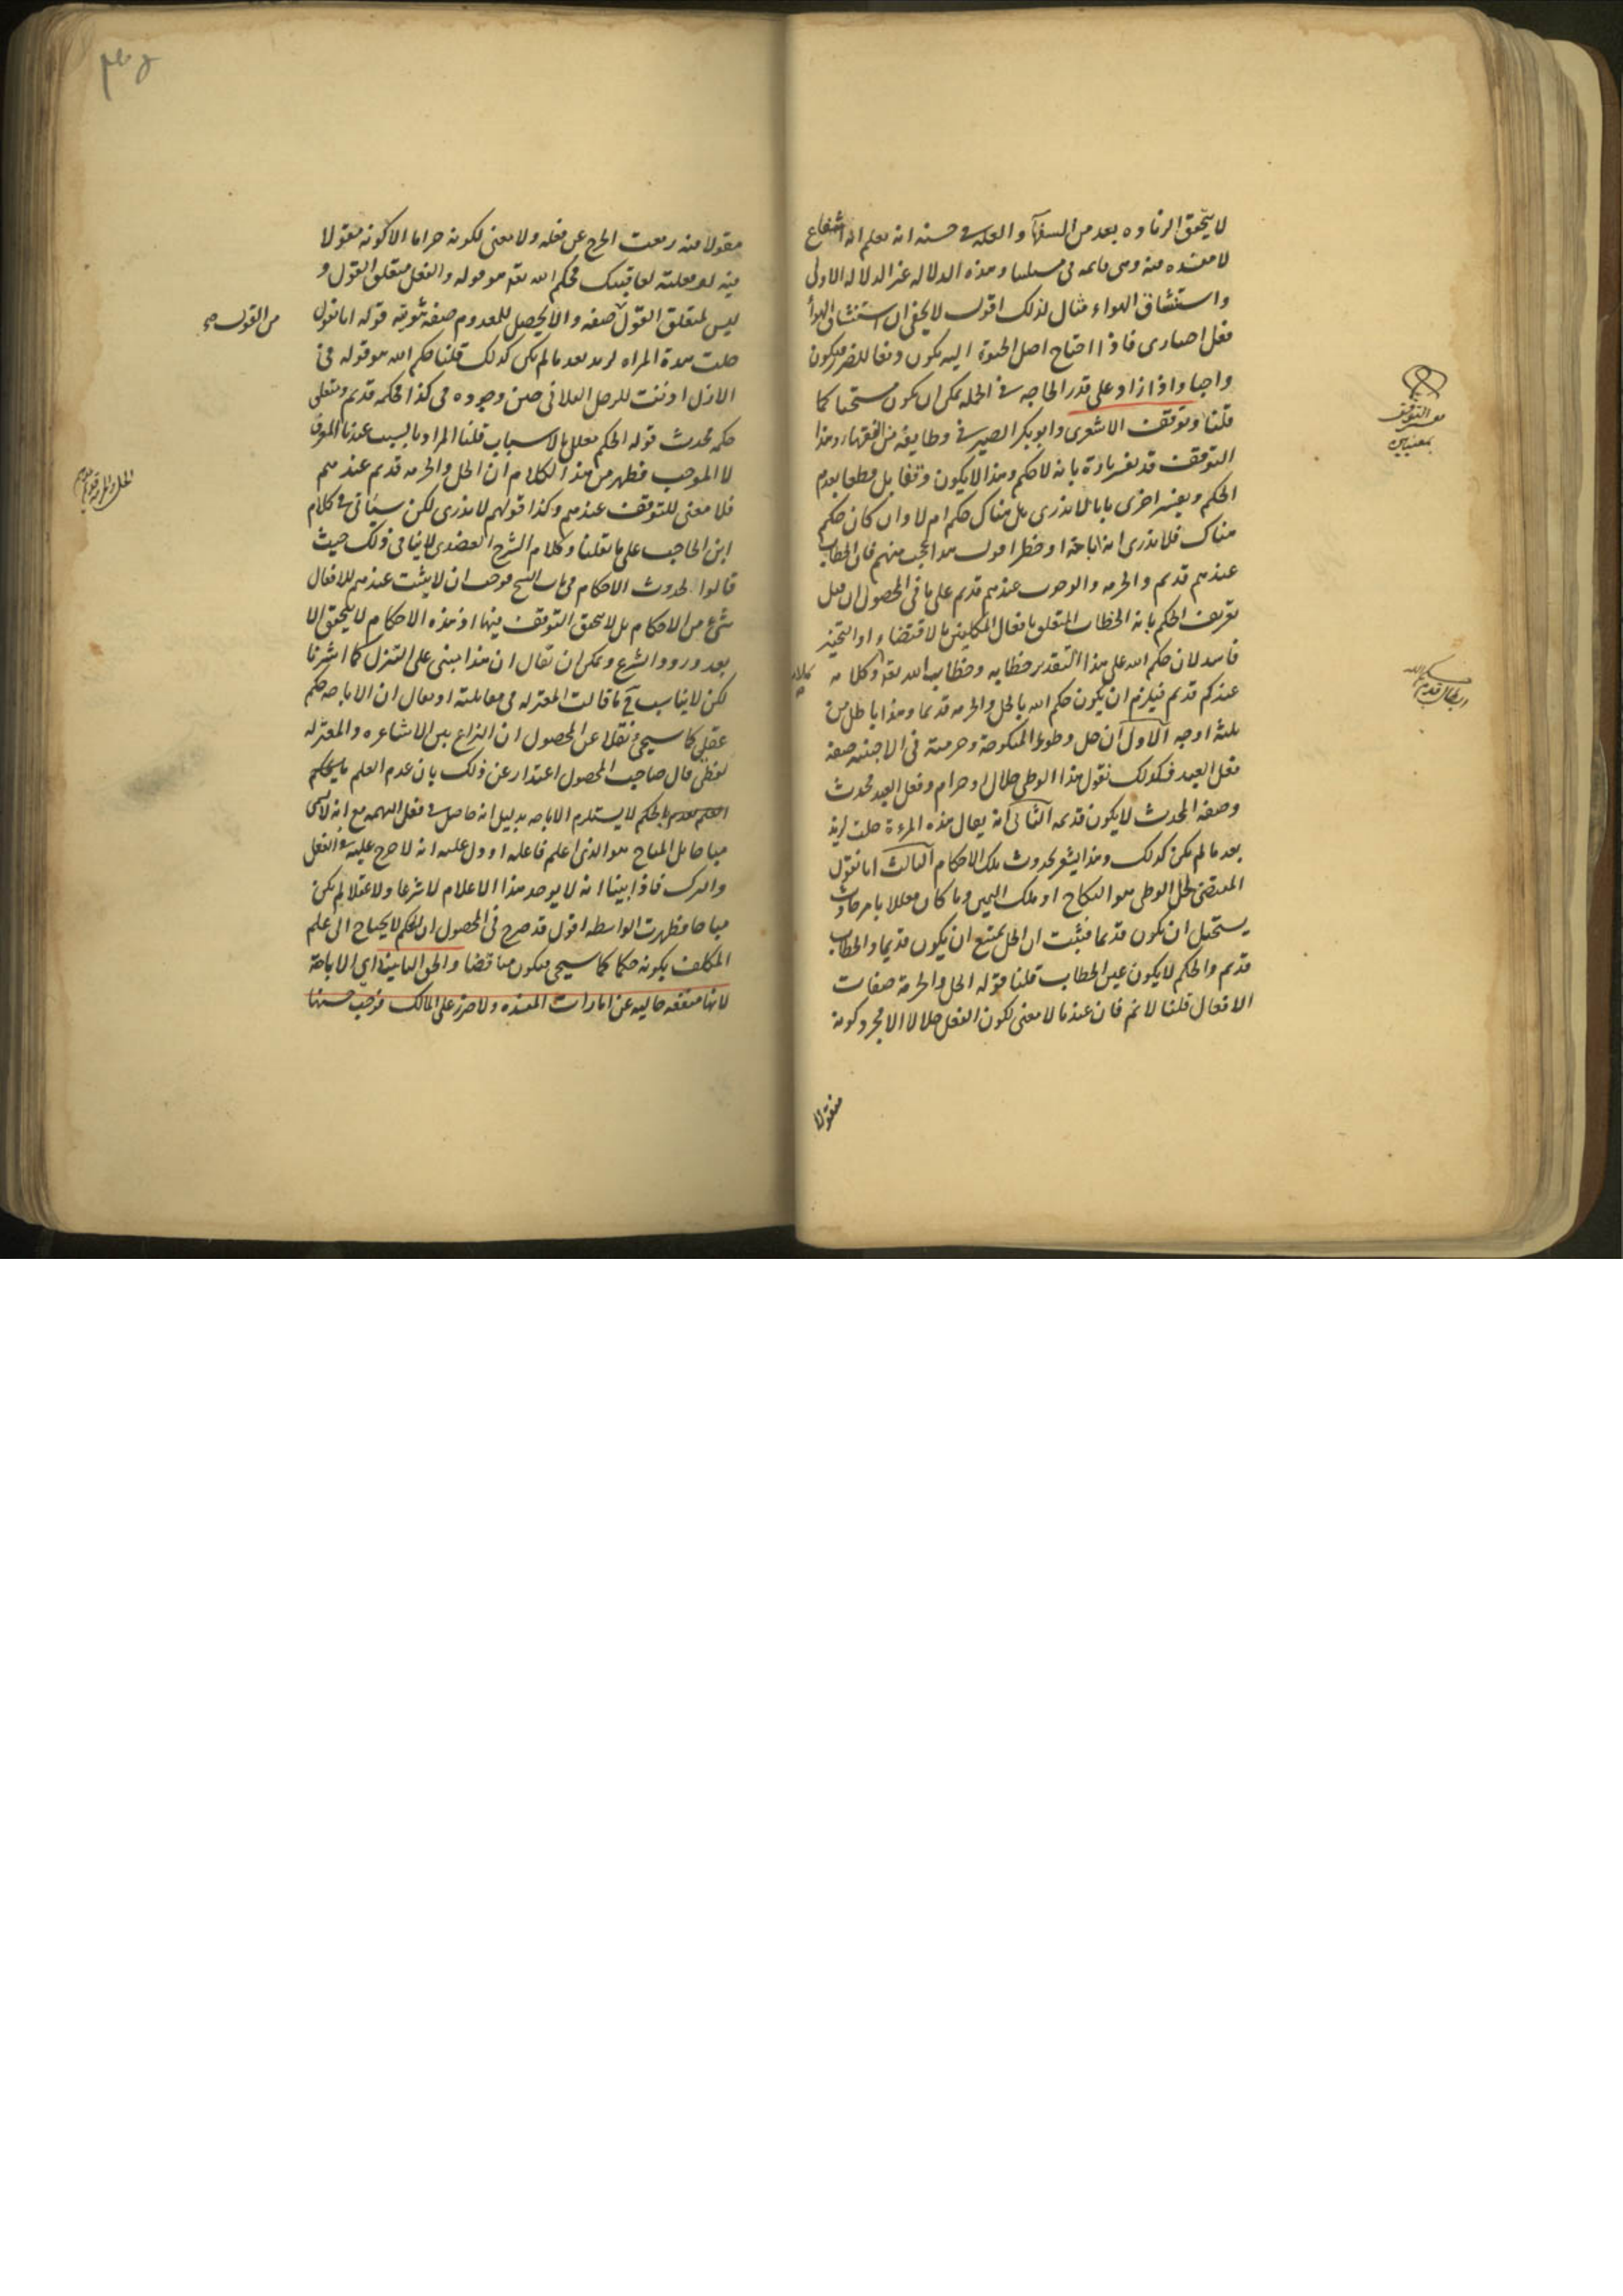 لا يتحقق الزيادة بعد من السفهآ والعلة فى حسنه انه يعلم انه انتفاع
لا مفسده فيه وهى قايمه فى مسئلتنا وهذه الدلاله غير الدلالة الاولى
واستنشاق الهواء مثال لذلك اقول لا يخفى ان استنشاق الهوآ
فعل اختيارى فاذا احتاج اصل الحيوة اليه يكون دفعا للضرر فيكون
واجبا واذا زاد على قدر الحاجه فى الجملة يمكن ان يكون مستحبا كما
قلنا وتوقف الاشعرى وابو بكر الصيرفى وطايفه من الفقهاء وهذا
التوقف قد يفسر تارة بانه لا حكم وهذا لا يكون وقفا بل قطعا بعدم
الحكم ويفسر اخرى بانا لا ندرى هل هناك حكم ام لا وان كان حكم
هناك فلا ندرى انه اباحة او حظر اقول هذا عجب منهم فان الخطاب
عندهم قديم والحرمه والوجوب عندهم قديم على ما فى المحصول ان قيل
تعريف الحكم بانه الخطاب المتعلق بافعال المكلفين بالاقتضاء او التخيير
فاسد لان حكم الله على هذا التقدير خطابه وخطاب الله تعه وكلامه
عندكم قديم فيلزم ان يكون حكم الله بالحل والحرمه قديما وهذا باطل من
ثلثه اوجه الاول ان حل وطىء المنكوحة وحرمته فى الاجنبيه صفه
فعل العبد فكذلك نقول هذا الوطى حلال او حرام وفعل العبد محدث
وصفه المحدث لا يكون قديمه الثانى انه يقال هذه المرءة حلت لزيد
بعد ما لم يكن كذلك وهذا يشعر بحدوث تلك الاحكام الثالث انا نقول
المقتضى لحل الوطى هو النكاح او ملك اليمين وما كان معللا بامر حادث
يستحيل ان يكون قديما فثبت ان الحل يمتنع ان يكون قديما والخطاب
قديم والحكم لا يكون عين الخطاب قلنا قوله الحل والحرمة صفات
الافعال قلنا لا نم فان عندنا لا معنى لكون الفعل حلالا الا مجرد كونه
مقولا
تفسير التوقف
بمعنيين
مقولا فيه رفعت الحرج عن فعله ولا معنى لكونه حراما الا كونه مقولا
فيه لو فعلته لعاقبتك فحكم الله تعه هو قوله والفعل متعلق القول و
ليس لمتعلق القول صفه والا يحصل للمعدوم صفه ثبوتيه قوله انا نقول
من القول صح
حلت هذة المراه لزيد بعد ما لم يكن كذلك قلنا حكم الله هو قوله فى
الازل اذنت للرجل الفلانى حين وجوده فى كذا فحكمه قديم ومتعلق
حكمه محدث قوله الحكم معلل بالاسباب قلنا المراد بالسبب عندنا المعرف
لا الموجب فظهر من هذا الكلام ان الحل والحرمه قديم عندهم
فلا معنى للتوقف عندهم وكذا قولهم لا ندرى لكن سياتى فى كلام
ابن الحاجب على ما نقلنا وكلام الشرح العضدى لا ينافى ذلك حيث
قالوا بحدوث الاحكام فى باب النسخ فوجب ان لا يثبت عندهم للافعال
شىء من الاحكام بل لا تحقق التوقف فيها اذ هذه الاحكام لا يتحقق الا
بعد ورود الشرع ويمكن ان يقال ان هذا مبنى على التنزل كما اشرنا
لكن لا يناسب فى ما قالت المعتزله فى مقابلته او يقال ان الاباحه حكم
عقلى كما سيجىء نقلا عن المحصول ان النزاع بين الاشاعره والمعتزله
لفظى قال صاحب المحصول اعتذار عن ذلك بان عدم العلم
بالحكم لا يستلزم الاباحه بدليل انه حاصل فى فعل البهيمه مع انه لا يسمى
مباحا بل المباح هو الذى اعلم فاعله او دل عليه انه لا حرج عليه فى الفعل
والترك فاذا بينا انه لا يوجد هذا الاعلام لا شرعا ولا عقلا لم يكن
مباحا فظهرت الواسطه اقول قد صرح فى المحصول ان الحكم لا يحتاج الى علم
المكلف بكونه حكما كما سيجى فيكون مناقضا والحق الثانية اى الاباحة
لانها منفعه خاليه عن امارات المفسده ولا ضرر على المالك فوجب حسنها